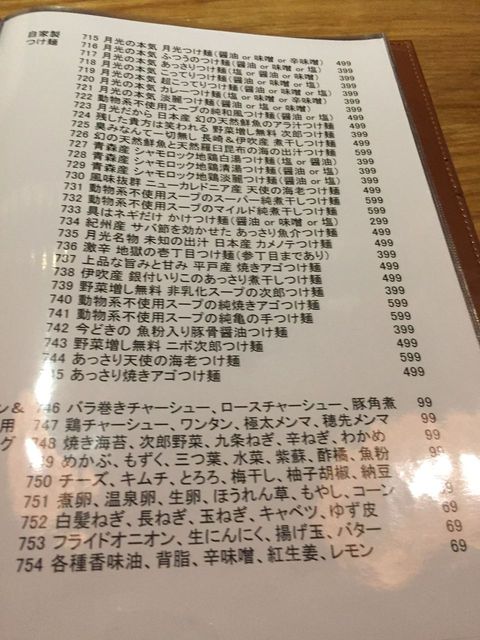 自家製
つけ麺
715 月光の本気 月光つけ麺(醤油 or 味噌 or 辛味噌) 499
716 月光の本気 ふつうのつけ麺(醤油 or 味噌 or 塩) 399
717 月光の本気 あっさりつけ麺(塩 or 醤油 or 味噌) 399
718 月光の本気 こってりつけ麺(醤油 or 味噌 or 塩) 399
719 月光の本気 超こってりつけ麺(醤油 or 味噌 or 塩) 399
720 月光の本気 カレーつけ麺(味噌 or 辛味噌) 399
721 月光の本気 淡麗つけ麺(醤油 or 塩 or 味噌) 399
722 動物系不使用スープの純和風つけ麺(醤油 or 塩) 399
723 月光だから 日本産 幻の天然鮮魚のアラ汁つけ麺 499
724 残した貴方は笑われる 野菜増し無料 次郎つけ麺 399
725 臭みなんて一切無し 長崎&伊吹産 煮干しつけ麺 499
726 幻の天然鮮魚と天然羅臼昆布の海の出汁つけ麺 599
727 青森産 シャモロック地鶏白湯つけ麺(塩 or 醤油) 399
728 青森産 シャモロック地鶏清湯つけ麺(醤油 or 塩) 399
729 青森産 シャモロック地鶏淡麗つけ麺(醤油 or 塩) 399
730 風味抜群 ニューカレドニア産 天使の海老つけ麺 499
731 動物系不使用スープのスーパー純煮干しつけ麺 599
732 動物系不使用スープのマイルド純煮干しつけ麺 599
733 具はネギだけ かけつけ麺(醤油 or 味噌 or 塩) 299
734 紀州産 サバ節を効かせた あっさり魚介つけ麺 499
735 月光名物 未知の出汁 日本産 カメノテつけ麺 499
736 激辛 地獄の壱丁目つけ麺(参丁目まであり) 399
737 上品な旨みと甘み 平戸産 焼きアゴつけ麺 499
738 伊吹産 銀付いりこのあっさり煮干しつけ麺 499
739 野菜増し無料 非乳化スープの次郎つけ麺 399
740 動物系不使用スープの純焼きアゴつけ麺 599
741 動物系不使用スープの純亀の手つけ麺 599
742 今どきの 魚粉入り豚骨醤油つけ麺 399
743 野菜増し無料 ニボ次郎つけ麺 499
744 あっさり天使の海老つけ麺 599
45 あっさり焼きアゴつけ麺 499
ン& 746 バラ巻きチャーシュー、ロースチャーシュー、豚角煮 99
用 747 鶏チャーシュー、ワンタン、極太メンマ、穂先メンマ 99
グ 748 焼き海苔、次郎野菜、九条ねぎ、辛ねぎ、わかめ 99
49 めかぶ、もずく、三つ葉、水菜、紫蘇、酢橘、魚粉 99
750 チーズ、キムチ、とろろ、梅干し、柚子胡椒、納豆 99
751 煮卵、温泉卵、生卵、ほうれん草、もやし、コーン 99
752 白髪ねぎ、長ねぎ、玉ねぎ、キャベツ、ゆず皮 69
753 フライドオニオン、生にんにく、揚げ玉、バター 69
754 各種香味油、背脂、辛味噌、紅生姜、レモン 69